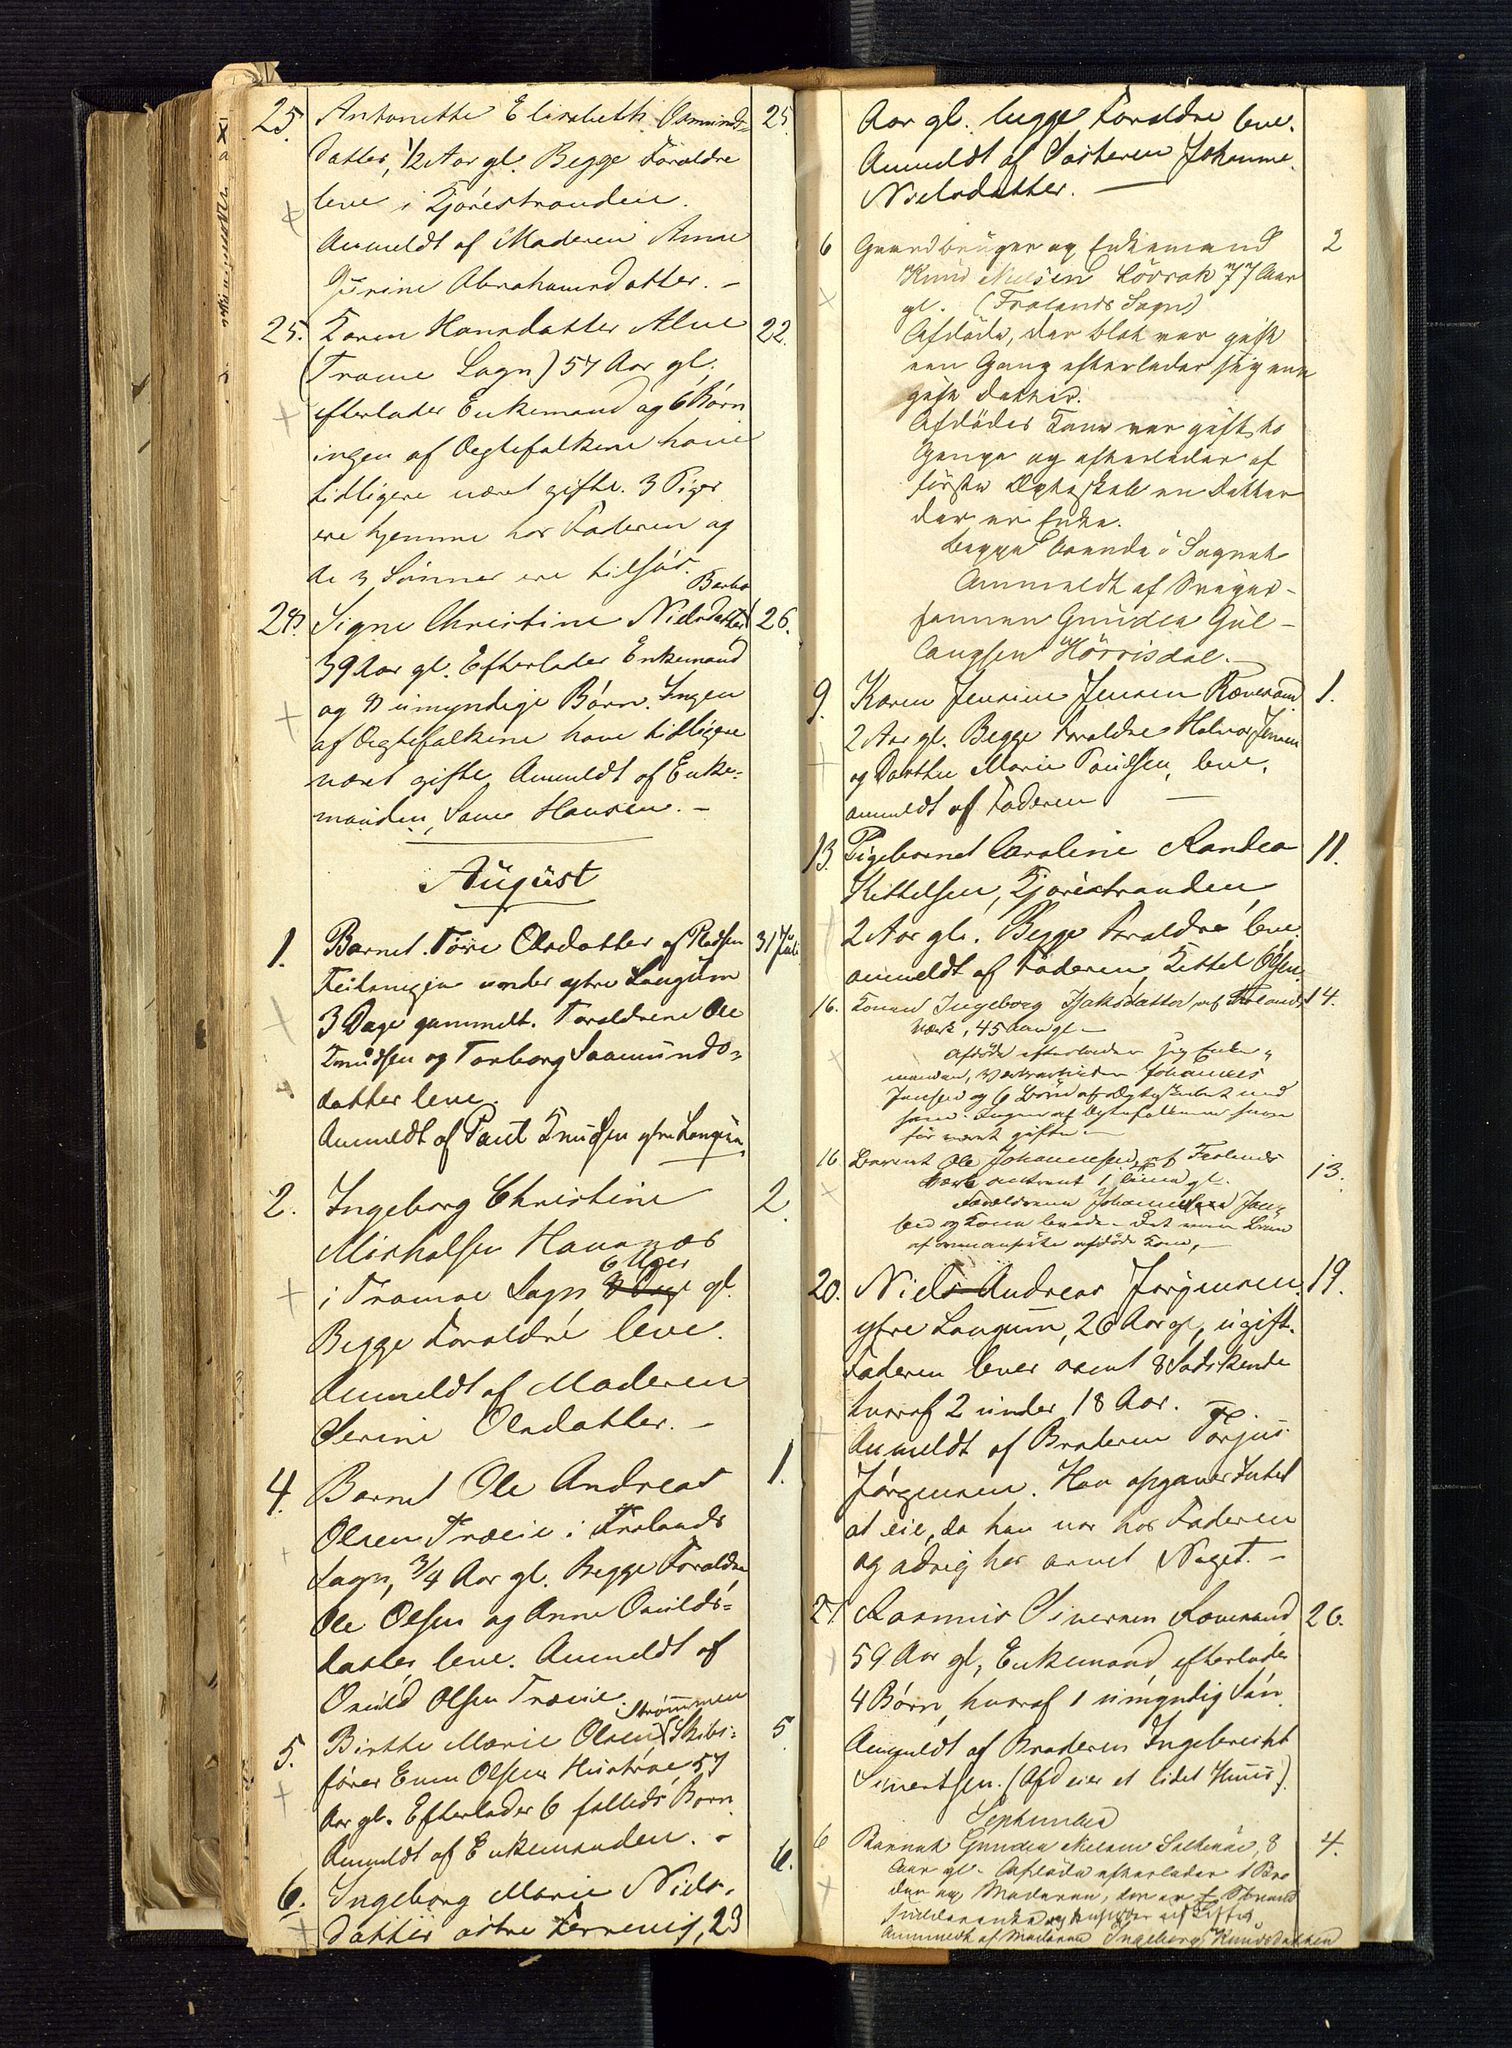 25. Antonette Elisabeth Osmunds- 25.
datter, 1/2 Aar gl. Begge Forældre
leve i Kjørestranden.
Anmeldt af Moderen Anne
Jurine Abrahamsdatter. –
25. Karen Hansdatter Alve 22.
(Tromø Sogn) 57 Aar gl.
efterlader Enkemand og 6 Børn
ingen af Ægtefolkene have
tidligere været gifte. 3 Piger
ere hjemme hos Faderen og
de 3 Sønner ere tilsjøs.
Barbo
28. Signe Christine Nielsdatter 26.
39 Aar gl. Efterlader Enkemand
og 8 umyndige Børn. Ingen
af Ægtefolkene have tidligere
været gifte. Anmeldt af Enke-
manden, Hansen. –
August
1. Barnet Tore Olsdatter af Pladsen 31 Juli
under ytre Langum
3 Dage gammelt. Forældrene Ole
Knudsen og Torborg Saamunds-
datter leve.
Anmeldt af Paul Knudsen ytre Langum
2. Ingeborg Christine 2.
Mikalsen Havnæs
6 Uger
i Tromøe Sogn 8 Dage gl.
Begge Forældre leve.
Anmeldt af Moderen
Serine Olsdatter. –
4. Barnet Ole Andreas 1.
Olsen Træeie i Frolands
Sogn, 3/4 Aar gl. Begge Forældre
Ole Olsen og Anne Osulds-
datter leve. Anmeldt af
Osuld Olsen Træeie.
Strømmen
5. Birthe Marie Olsen Skibs- 5.
fører Even Olsens Hustrue, 57
Aar gl. Efterlader 6 fælleds Børn.
Anmeldt af Enkemanden. –
6. Ingeborg Marie Niels- 6.
datter østre , 23
Aar gl. begge Forældre leve.
Anmeldt af Søsteren Johanne
Nielsdatter. —
6 Gaardbruger og Enkemand 2
Knud Nielsen Løvrak 77 Aar
gl. (Frolands Sogn)
Afdøde, der blot var gift
een Gang efterlader sig een
gift Datter.
Afdødes Kone var gift to
Gange og efterlader af
første Ægteskab en Datter
der er Enke.
Begge boende i Sognet
Anmeldt af Sviger-
sønnen Gunder Gul-
Hørrisdal. –
9. Karen Jensine Jensen Rævesand 1.
2 Aar gl. Begge Forældre Halvor Jensen
og Dorthe Marie Poulsen, leve,
anmeldt af Faderen —
13. Pigebarnet Caroline Randea 11.
Kittelsen, Kjørestranden,
2 Aar gl. Begge Forældre leve.
anmeldt af Faderen, Kittel Olsen.
16. Konen Ingeborg Isaksdatter af Frolands 14.
Værk, 45 Aar gl –
Afdøde efterlader sig Enke-
manden, Johannes
Jensen og 6 Børn af Ægteskabet med
ham. Ingen af Ægtefolkene have
før været gifte. –
16. Barnet Ole Johannessen af Frolands 13.
Værk omtrent 1 gl.
Forældrene Johannes Jen-
sen og Kone levede – Det var Børn
af ovenanførte afdøde Kone, –
20. Niels Andreas Jørgensen 19.
ytre Langum, 26 Aar gl, ugift.
Faderen lever samt 8 Sødskende
hvoraf 2 under 18 Aar.
Anmeldt af Broderen Torjus
Jørgensen. Han opgaver Intet
at eie, da han var hos Faderen
og aldrig har arvet Noget. –
27. Rasmus Sivertsen Rævesand, 26.
59 Aar gl, Enkemand, efterlader
4 Børn, hvoraf 1 umyndig Søn.
Anmeldt af Broderen Ingebrecht
Sivertsen. (Afd eier et lidet Huus).
September
6 Barnet Gunder Nielsen , 8 4.
Aar gl – Afdøde efterlader 1 Bro
der og Moderen, der er
Anmeldt af Moderen Ingeborg Knudsdatter